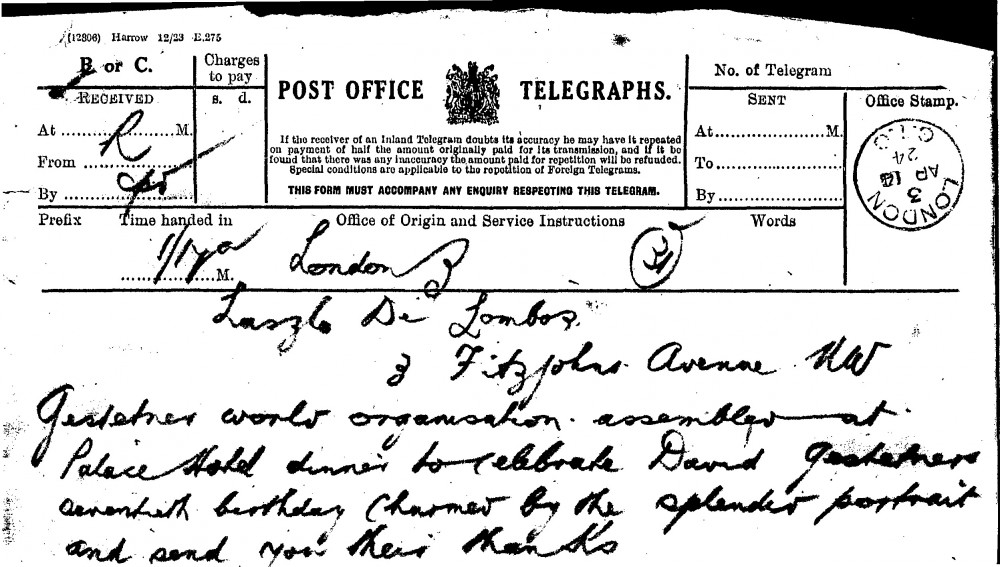 (12806) Harrow 12/23 E,275
B or C.
Charges
to pay
s. d.
RECEIVED
At ... M.
From
By
POST OFFICE TELEGRAPHS.
If the receiver of an Inland Telegram doubts its accuracy he may have it repeated
on payment of half the amount originally paid for its transmission, and if it be
found that there was any inaccuracy the amount paid for repetition will be refunded.
Special conditions are applicable to the repetition of Foreign Telegrams.
THIS FORM MUST ACCOMPANY ANY ENQUIRY RESPECTING THIS TELEGRAM.
No. of Telegram
SENT
At ... M.
To
By
Office Stamp.
LONDON
3
AP
24
C.T.O
Prefix Time handed in Office of Origin and Service Instructions Words
M.
London
Laszlo De Lombos
3 Fitzjohns Avenue NW
Gestetner world organisation assembled at
Palace Hotel dinner to celebrate David Gestetners
seventieth birthday Charmed by the splendid portrait
and send you their thanks